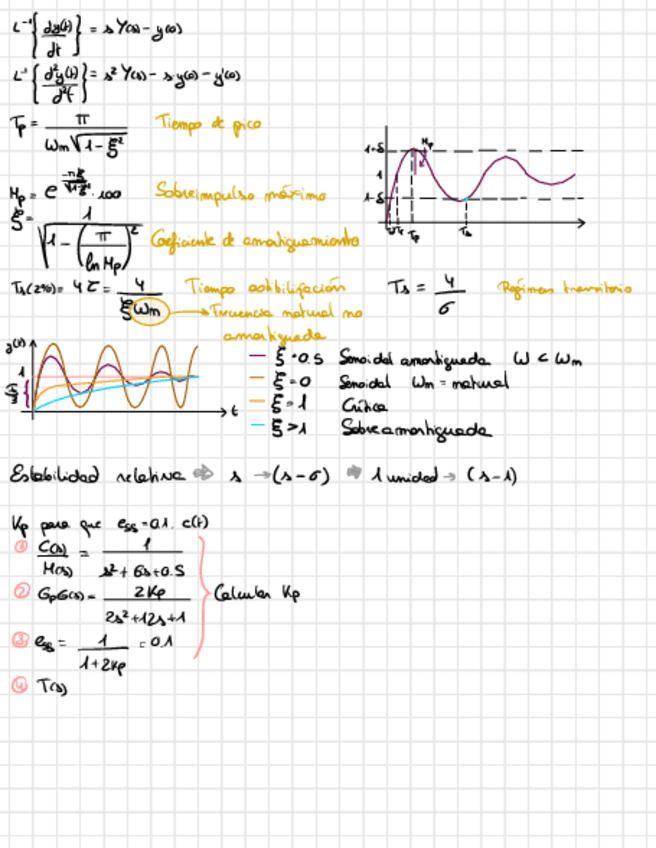 L⁻¹{dy(t)/dt} = s Y(s) - y(0)
L⁻¹{d²y(t)/d²t} = s² Y(s) - s y(0) - y'(0)
Tp = π / (ωm √(1-ξ²)) Tiempo de pico
Mp = e^(-πξ/√(1-ξ²)) · 100 Sobreimpulso máximo
ξ = 1 / √(1 - (π / ln Mp)²) Coeficiente de amortiguamiento
1+δ
Mp
1
1-δ
Tr Tp Ts
Ts(2%) = 4τ = 4 / ξωm Tiempo estibilización Ts = 4/σ Régimen transitorio
Frecuencia natural no
amortiguada
y(t)
1
t
ξ = 0.5 Senoidal amortiguada ω < ωm
ξ = 0 Senoidal ωm = natural
ξ = 1 Crítica
ξ > 1 Sobreamortiguada
Estabilidad relativa ⇒ s → (s-σ) ⇒ 1 unidad → (s-1)
Kp para que ess = 0.1 · c(t)
① C(s)/M(s) = 1 / (s² + 6s + 0.5)
② GpG(s) = 2Kp / (2s² + 12s + 1) Calcular Kp
③ ess = 1 / (1+2Kp) = 0.1
④ T(s)